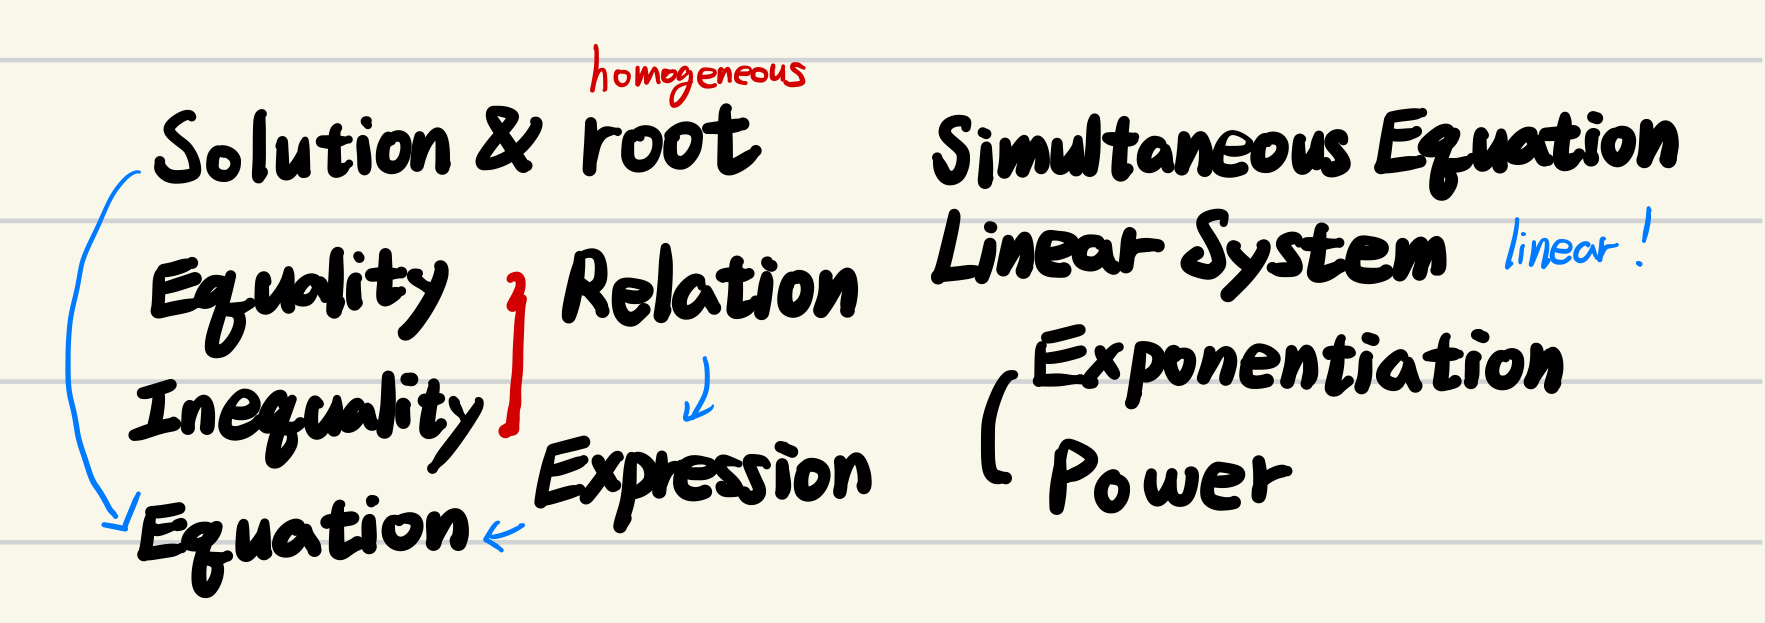 homogeneous
Solution & root
Equality
Relation
Inequality
Expression
Equation
Simultaneous Equation
Linear System linear!
Exponentiation
Power